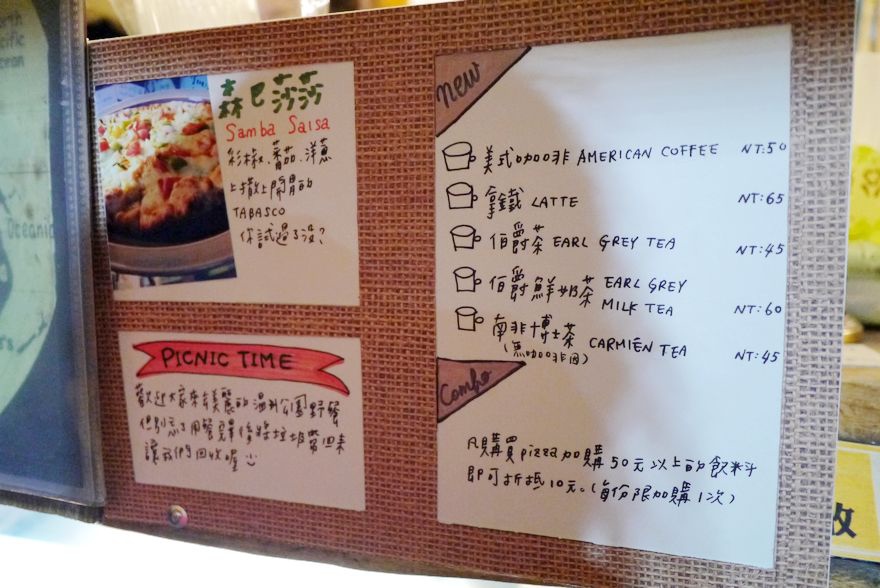 森巴莎莎
Samba Salsa
彩椒、蕃茄、洋蔥
上撒上開胃的
TABASCO
你試過了沒?
PICNIC TIME
歡迎大家來美麗的溫州公園野餐
但別忘了用餐畢後將垃圾帶回來
讓我們回收喔
New
美式咖啡 AMERICAN COFFEE NT:50
拿鐵 LATTE NT:65
伯爵茶 EARL GREY TEA NT:45
伯爵鮮奶茶 EARL GREY
MILK TEA NT:60
南非博士茶 CARMIEN TEA NT:45
(無咖啡因)
Combo
凡購買pizza加購50元以上的飲料
即可折抵10元。(每份限加購1次)
Oceania